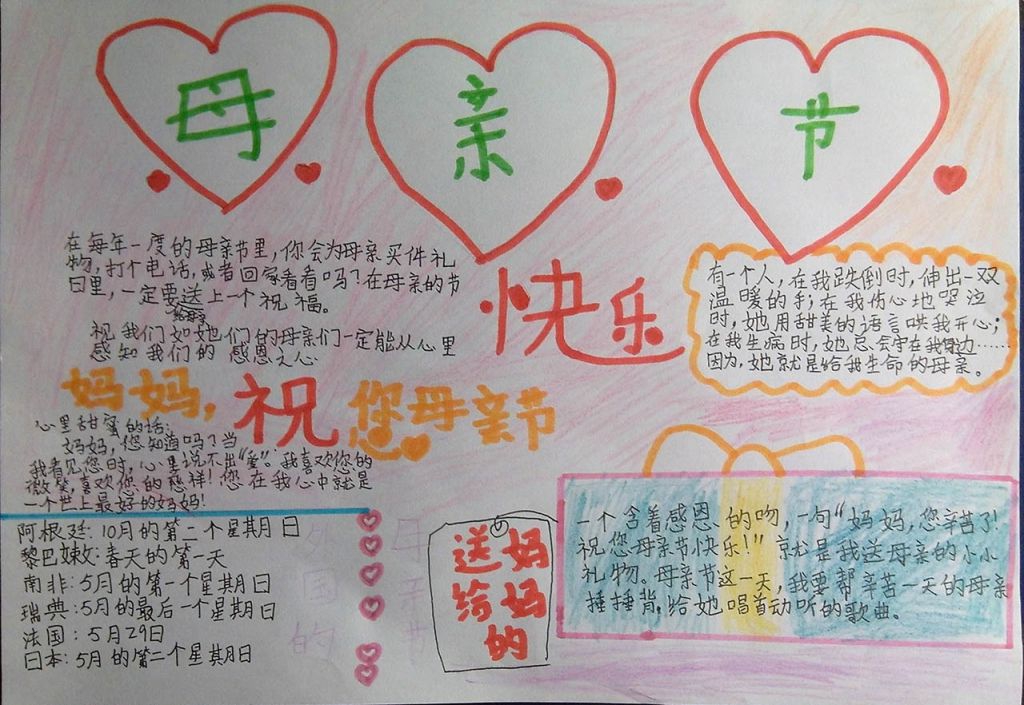 母 亲 节
在每年一度的母亲节里,你会为母亲买件礼
物,打个电话,或者回家看看吗?在母亲的节
日里,一定要送上一个祝福。
祝我们如她们的母亲们一定能从心里
感知我们的感恩之心
快乐
有一个人,在我跌倒时,伸出一双
温暖的手;在我伤心地哭泣
时,她用甜美的语言哄我开心;
在我生病时,她总会守在我身边……
因为,她就是给我生命的母亲。
妈妈,祝您母亲节
心里甜蜜的话:
妈妈,您知道吗?当
我看见您时,心里说不出"爱"。我喜欢您的
微笑,喜欢您的慈祥!您在我心中就是
一个世上最好的妈妈!
阿根廷:10月的第二个星期日
黎巴嫩:春天的第一天
南非:5月的第一个星期日
瑞典:5月的最后一个星期日
法国:5月29日
日本:5月的第二个星期日
外国的
母亲节
送给
妈妈的
一个含着感恩的吻,一句"妈妈,您辛苦了!
祝您母亲节快乐!"就是我送母亲的小小
礼物。母亲节这一天,我要帮辛苦一天的母亲
捶捶背,给她唱首动听的歌曲。